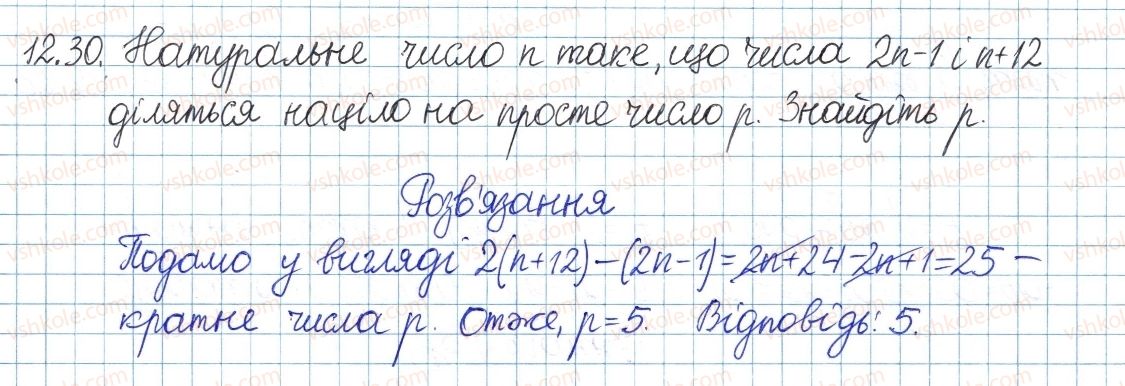 12.30. Натуральне число n таке, що числа 2n-1 і n+12
діляться націло на просте число p. Знайдіть p.
Розв'язання
Подамо у вигляді 2(n+12)-(2n-1)=2n+24-2n+1=25 -
кратне числа p. Отже, p=5. Відповідь: 5.